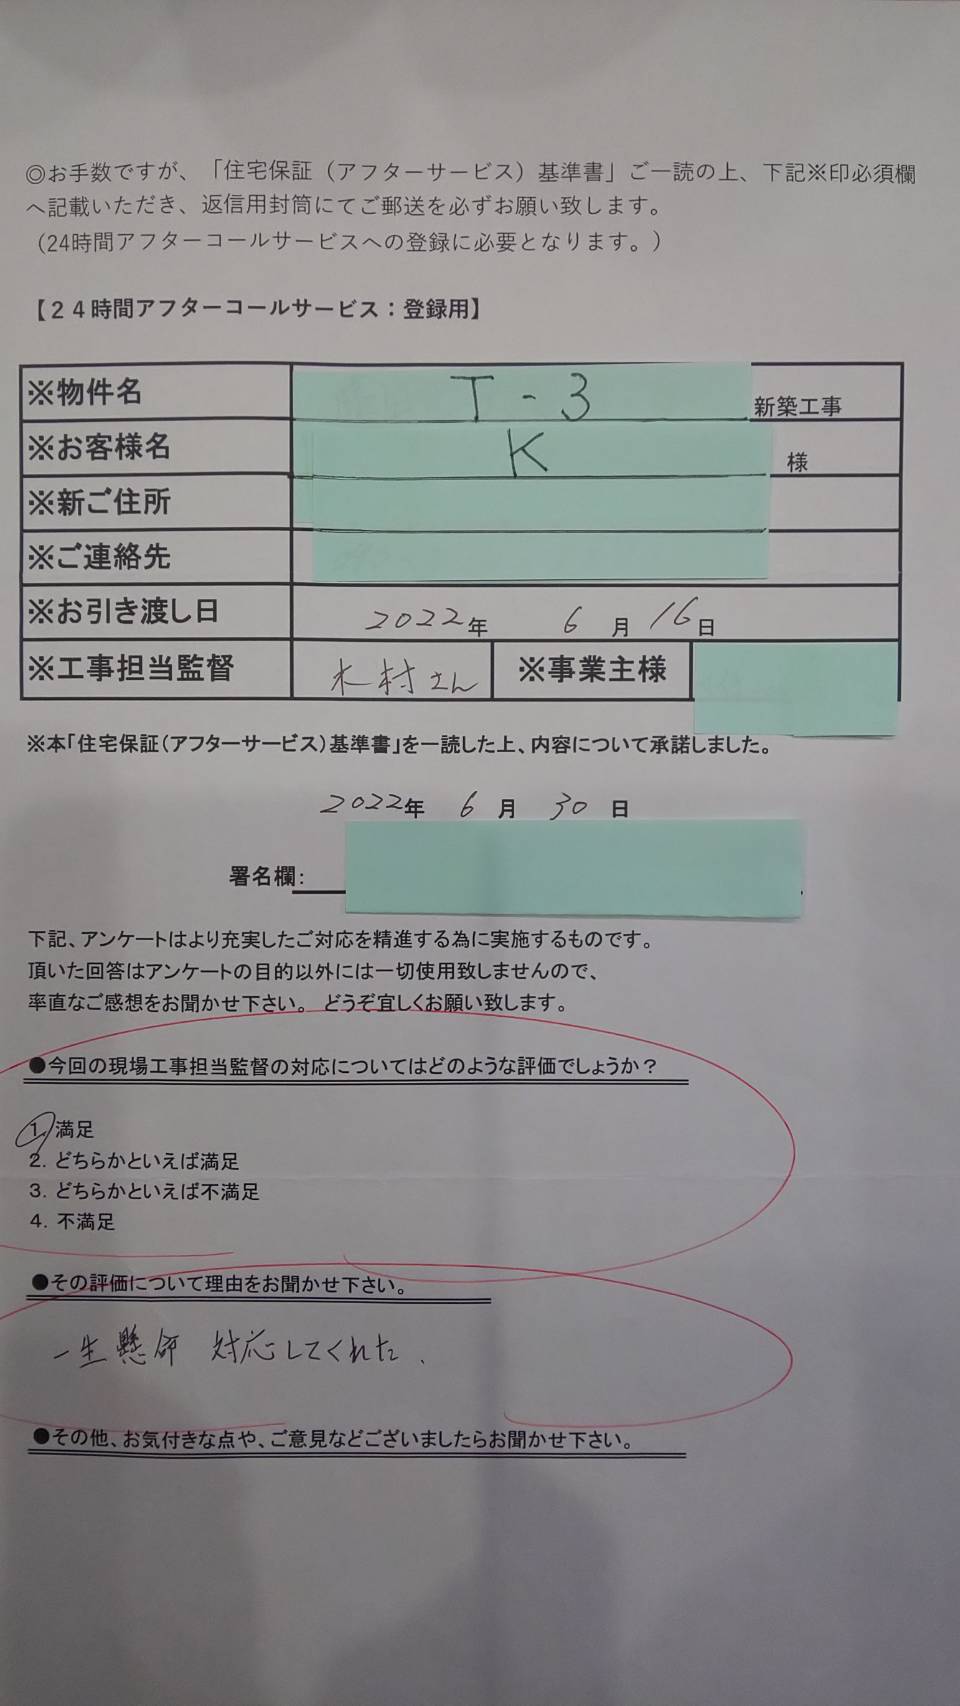 ◎お手数ですが、「住宅保証（アフターサービス）基準書」ご一読の上、下記※印必須欄
へ記載いただき、返信用封筒にてご郵送を必ずお願い致します。
（24時間アフターコールサービスへの登録に必要となります。）
【２４時間アフターコールサービス：登録用】
※物件名 T-3 新築工事
※お客様名 K 様
※新ご住所
※ご連絡先
※お引き渡し日 2022年 6月 16日
※工事担当監督 木村さん ※事業主様
※本「住宅保証（アフターサービス）基準書」を一読した上、内容について承諾しました。
2022年 6月 30日
署名欄：
下記、アンケートはより充実したご対応を精進する為に実施するものです。
頂いた回答はアンケートの目的以外には一切使用致しませんので、
率直なご感想をお聞かせ下さい。 どうぞ宜しくお願い致します。
●今回の現場工事担当監督の対応についてはどのような評価でしょうか？
1. 満足
2. どちらかといえば満足
3. どちらかといえば不満足
4. 不満足
●その評価について理由をお聞かせ下さい。
一生懸命 対応してくれた、
●その他、お気付きな点や、ご意見などございましたらお聞かせ下さい。